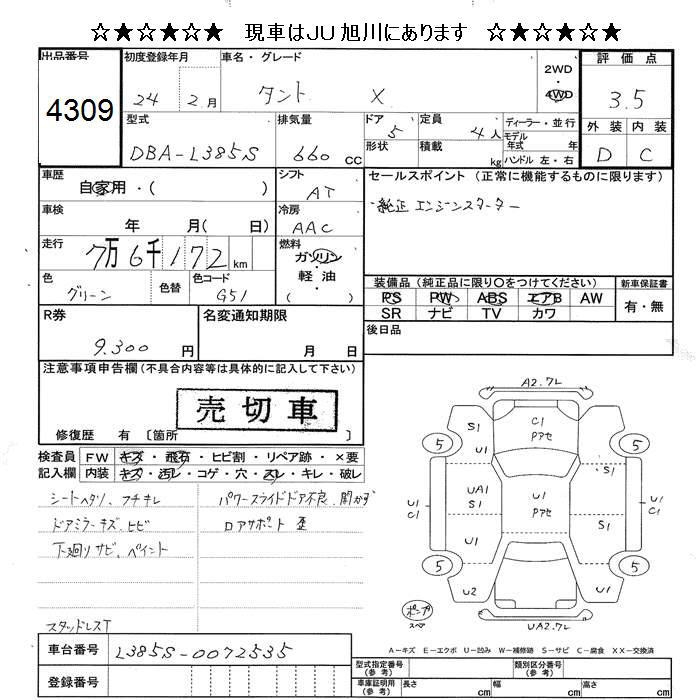 ☆★☆★☆★ 現車はJU旭川にあります ☆★☆★☆★
出品番号 初度登録年月 車名・グレード 評価点
4309 24 2月 タント X 2WD 4WD 3.5
型式 排気量 ドア 定員 ディーラー・並行 外装 内装
DBA-L385S 660 CC 5 4人 モデル年式 年 D C
形状 積載 kg ハンドル 左・右
車歴 シフト セールスポイント (正常に機能するものに限ります)
自家用・( ) AT 純正 エンジンスターター
車検 冷房
年 月( 日) AAC
走行 燃料
7万6千172km ガソリン・軽・油 ( )
色 色替 色コード 装備品 (純正品に限り〇をつけてください) 新車保証書
グリーン G51 PS PW ABS エアB AW 有・無
SR ナビ TV カワ
R券 名変通知期限 後日品
9.300円 月 日
注意事項申告欄(不具合内容等は具体的に記入して下さい)
売切車
修復歴 有 〔箇所 〕
検査員 FW キズ・飛石・ヒビ割・リペア跡・×要
記入欄 内装 キズ・汚レ・コゲ・穴・スレ・キレ・破レ
シートヘタリ、フチキレ パワースライドドア不良、開かず
ドアミラーキズ、ヒビ ロアサポート 歪
下廻りサビ、ペイント
スタッドレスT
A2.7L
S1 C1 Pアセ
5 U1 5
U1 C1 UA1 S1 U1 Pアセ S1 U1 C1
U1
5 5
U2 U1
ポンプ スペア UA2.7L
A-キズ E-エクボ U-凹み W-補修跡 S-サビ C-腐食 XX-交換済
車台番号 L385S-0072535
登録番号
型式指定番号(参考) 類別区分番号(参考)
車庫証明用(参考) 長さ cm 幅 cm 高さ cm